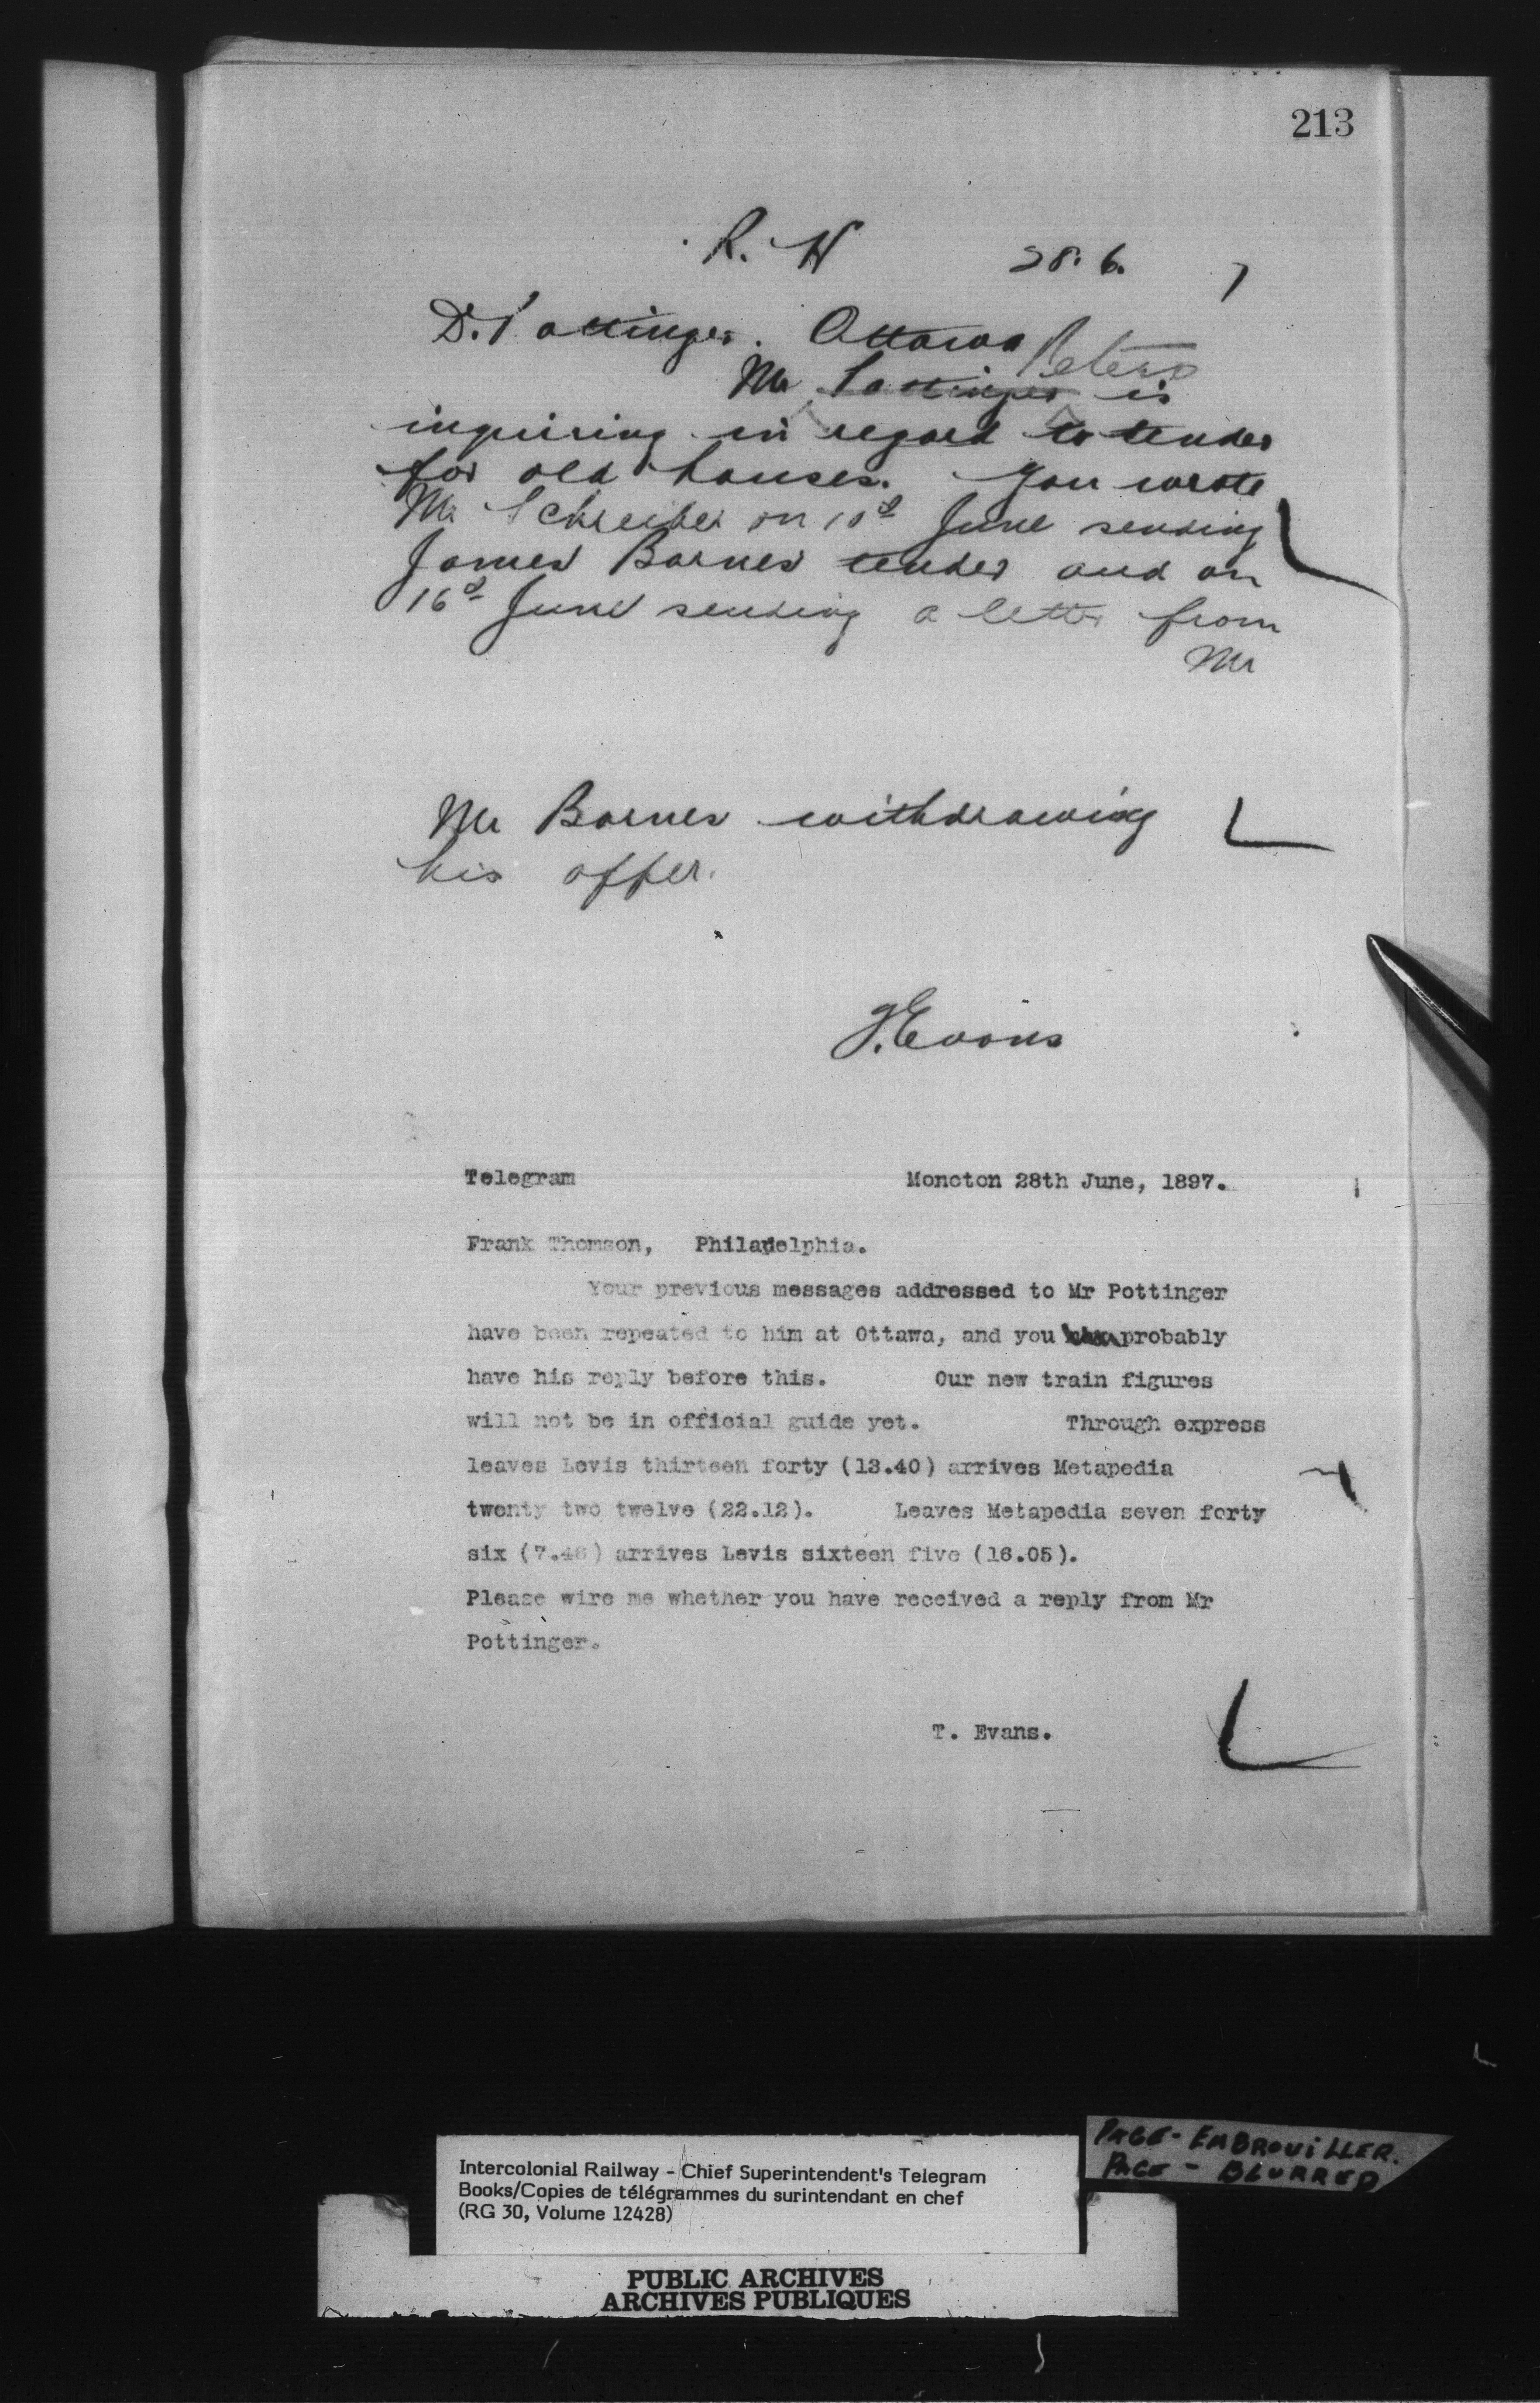 213
R. H 28. 6. 7
D. Pottinger. Ottawa
Peters
Mr Pottinger is
inquiring in regard to tender
for old houses. You wrote
Mr Schreiber on 10th June sending
James Barnes tender and on
16th June sending a letter from
Mr
Mr Barnes withdrawing
his offer.
T. Evans
Telegram Moncton 28th June, 1897.
Frank Thomson, Philadelphia.
Your previous messages addressed to Mr Pottinger
have been repeated to him at Ottawa, and you probably
have his reply before this. Our new train figures
will not be in official guide yet. Through express
leaves Levis thirteen forty (13.40) arrives Metapedia
twenty two twelve (22.12). Leaves Metapedia seven forty
six (7.46) arrives Levis sixteen five (16.05).
Please wire me whether you have received a reply from Mr
Pottinger.
T. Evans.
PAGE - EMBROUILLER.
PAGE - BLURRED
Intercolonial Railway - Chief Superintendent's Telegram
Books/Copies de télégrammes du surintendant en chef
(RG 30, Volume 12428)
PUBLIC ARCHIVES
ARCHIVES PUBLIQUES